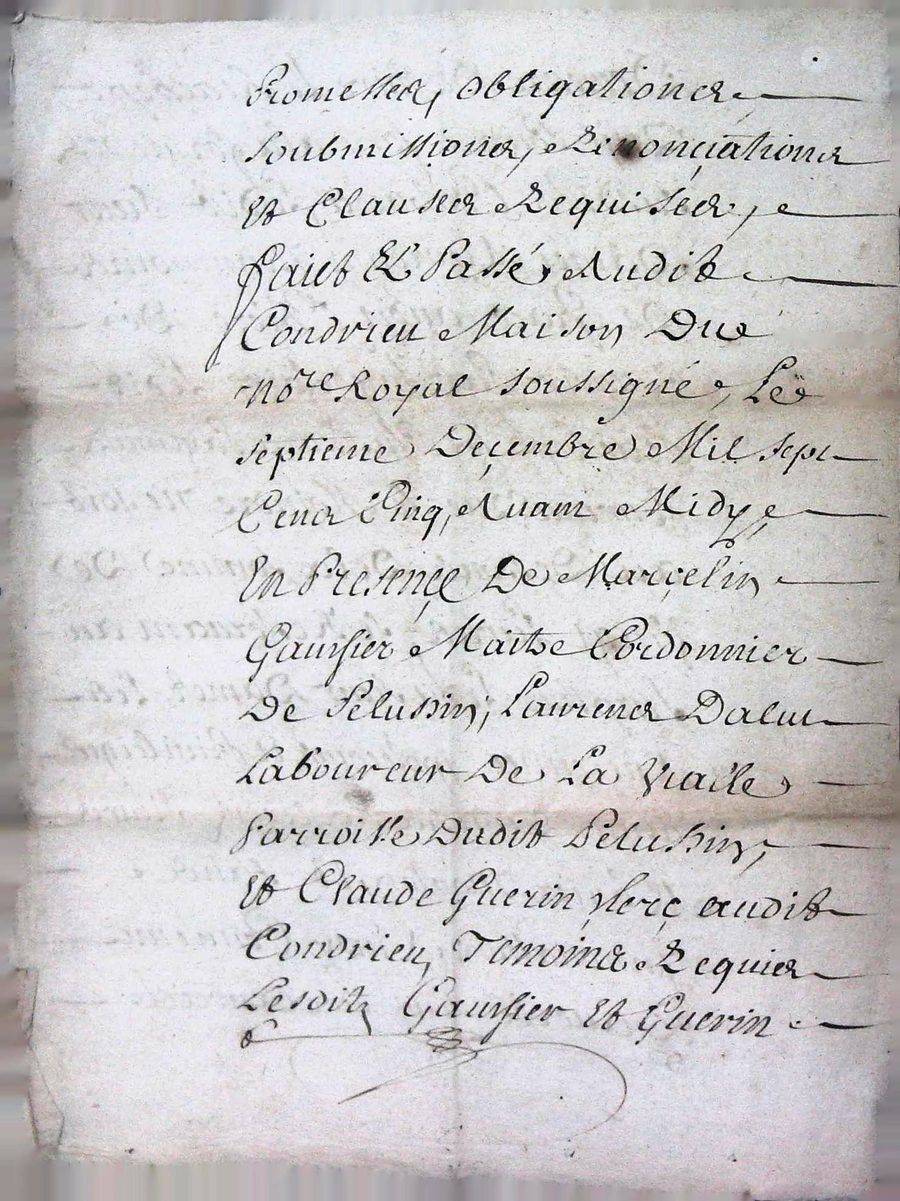 Promesses, obligations,
soubmissions, Renonçiations
Et Clauses Requises,
faict Et Passé Audit
Condrieu Maison Du
no.re Royal soussigné, Le
septieme Deçembre Mil sept
Cens Cinq, Auant Midy,
En Presençe De Marçelin
Maitre Cordonnier
De Pelussin, Laurens
Laboureur De La
Parroisse Dudit Pelussin,
Et Claude Guerin clerc audit
Condrieu, Temoins Requis
Lesdits Et Guerin